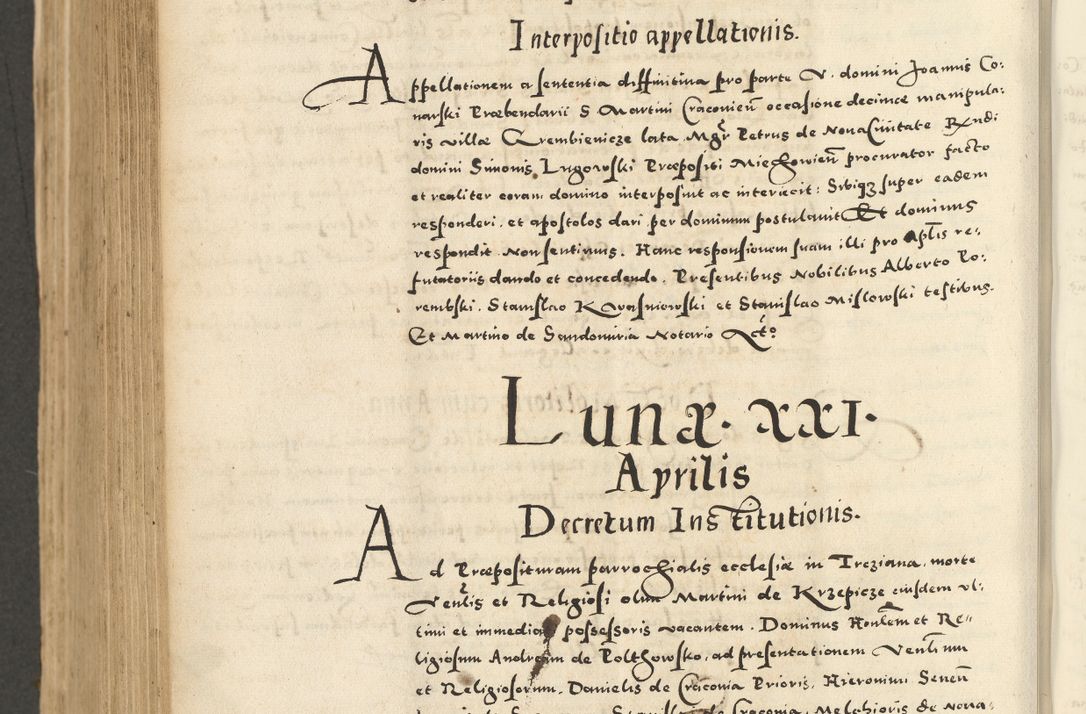 Interpositio appellationis.
Appellationem a sententia diffinitiva pro parte V. domini Joannis Co-
narski Præbendarii S. Martini Cracovieñ occasione decimæ manipula-
ris villæ Grembienicze lata. Mgr Petrus de Nova Civitate Rndi
domini Simonis Lugowski Præpositi Miechovieñ procurator facto
et realiter coram domino interposuit ac interiecit: Sibiqz super eadem
responderi, et apostolos dari per dominum postulavit. Et dominus
respondit non sentimus. Hanc responsionem suam illi pro aplis re-
futatoriis dando et concedendo. Presentibus Nobilibus Alberto Po-
rembski. Stanislao Kwasniowski et Stanislao Mislowski testibus.
Et Martino de Sandomiria Notario
Lunæ. XXI.
Aprilis
Decretum Institutionis.
Ad Præposituram parrochialis ecclesiæ in Trcziana, morte
Venlis et Religiosi olim Martini de Krzepicze eiusdem ul-
timi et immediati possessoris vacantem. Dominus Honlem et Re-
ligiosum Andream de Polthowsko, ad presentationem Venlium
et Religiosorum. Danielis de Cracovia Prioris, Hieronimi Senen
Cracovia, Melchioris de Nova-